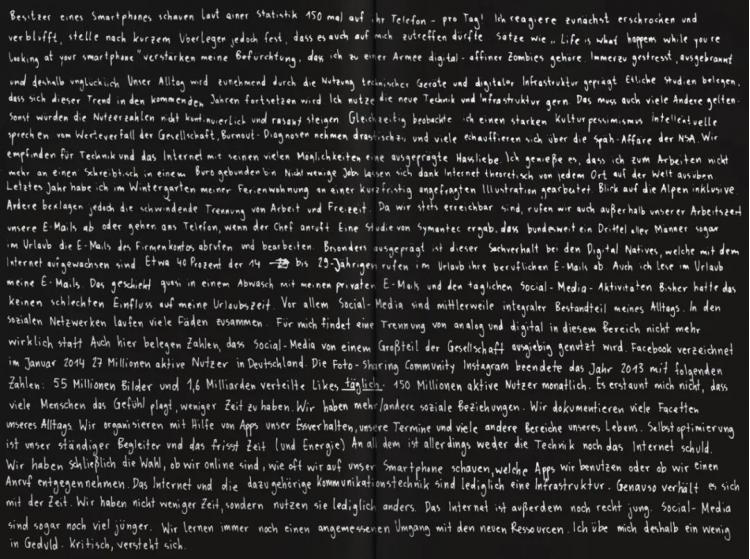 Besitzer eines Smartphones schauen laut einer Statistik 150 mal auf ihr Telefon - pro Tag! Ich reagiere zunächst erschrocken und
verblüfft, stelle nach kurzem Überlegen jedoch fest, dass es auch auf mich zutreffen dürfte. Sätze wie „Life is what happens while you're
looking at your smartphone" verstärken meine Befürchtung, dass ich zu einer Armee digital-affiner Zombies gehöre. Immerzu gestresst, ausgebrannt
und deshalb unglücklich. Unser Alltag wird zunehmend durch die Nutzung technischer Geräte und digitaler Infrastruktur geprägt. Etliche Studien belegen,
dass sich dieser Trend in den kommenden Jahren fortsetzen wird. Ich nutze die neue Technik und Infrastruktur gern. Das muss auch viele Andere gelten.
Sonst würden die Nutzerzahlen nicht kontinuierlich und rasant steigen. Gleichzeitig beobachte ich einen starken Kulturpessimismus. Intellektuelle
sprechen vom Werteverfall der Gesellschaft, Burnout-Diagnosen nehmen drastisch zu, und viele echauffieren sich über die Späh-Affäre der NSA. Wir
empfinden für Technik und das Internet mit seinen vielen Möglichkeiten eine ausgeprägte Hassliebe. Ich genieße es, dass ich zum Arbeiten nicht
mehr an einen Schreibtisch in einem Büro gebunden bin. Nicht wenige Jobs lassen sich dank Internet theoretisch von jedem Ort auf der Welt ausüben.
Letztes Jahr habe ich im Wintergarten meiner Ferienwohnung an einer kurzfristig angefragten Illustration gearbeitet. Blick auf die Alpen inklusive.
Andere beklagen jedoch die schwindende Trennung von Arbeit und Freizeit. Da wir stets erreichbar sind, rufen wir auch außerhalb unserer Arbeitszeit
unsere E-Mails ab oder gehen ans Telefon, wenn der Chef anruft. Eine Studie von Symantec ergab, dass bundesweit ein Drittel aller Männer sogar
im Urlaub die E-Mails des Firmenkontos abrufen und bearbeiten. Besonders ausgeprägt ist dieser Sachverhalt bei den Digital Natives, welche mit dem
Internet aufgewachsen sind. Etwa 40 Prozent der 14 bis 29-Jährigen rufen im Urlaub ihre beruflichen E-Mails ab. Auch ich lese im Urlaub
meine E-Mails. Das geschieht quasi in einem Abwasch mit meinen privaten E-Mails und den täglichen Social-Media-Aktivitäten. Bisher hatte das
keinen schlechten Einfluss auf meine Urlaubszeit. Vor allem Social-Media sind mittlerweile integraler Bestandteil meines Alltags. In den
sozialen Netzwerken laufen viele Fäden zusammen. Für mich findet eine Trennung von analog und digital in diesem Bereich nicht mehr
wirklich statt. Auch hier belegen Zahlen, dass Social-Media von einem Großteil der Gesellschaft ausgiebig genutzt wird. Facebook verzeichnet
im Januar 2014 27 Millionen aktive Nutzer in Deutschland. Die Foto-Sharing Community Instagram beendete das Jahr 2013 mit folgenden
Zahlen: 55 Millionen Bilder und 1,6 Milliarden verteilte Likes täglich. 150 Millionen aktive Nutzer monatlich. Es erstaunt mich nicht, dass
viele Menschen das Gefühl plagt, weniger Zeit zu haben. Wir haben mehr/andere soziale Beziehungen. Wir dokumentieren viele Facetten
unseres Alltags. Wir organisieren mit Hilfe von Apps unser Essverhalten, unsere Termine und viele andere Bereiche unseres Lebens. Selbstoptimierung
ist unser ständiger Begleiter und das frisst Zeit (und Energie). An all dem ist allerdings weder die Technik noch das Internet schuld.
Wir haben schließlich die Wahl, ob wir online sind, wie oft wir auf unser Smartphone schauen, welche Apps wir benutzen oder ob wir einen
Anruf entgegennehmen. Das Internet und die dazugehörige Kommunikationstechnik sind lediglich eine Infrastruktur. Genauso verhält es sich
mit der Zeit. Wir haben nicht weniger Zeit, sondern nutzen sie lediglich anders. Das Internet ist außerdem noch recht jung. Social-Media
sind sogar noch viel jünger. Wir lernen immer noch einen angemessenen Umgang mit den neuen Ressourcen. Ich übe mich deshalb ein wenig
in Geduld. Kritisch, versteht sich.